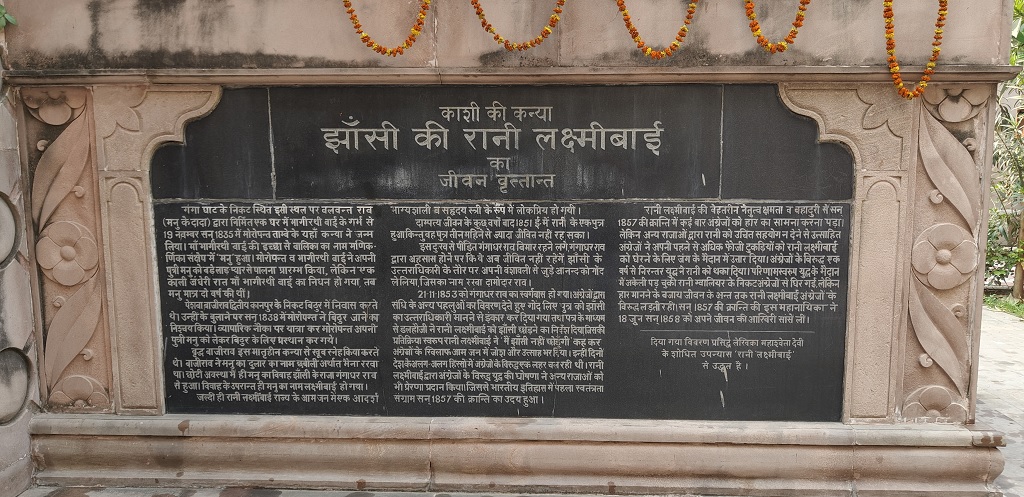 काशी की कन्या
झाँसी की रानी लक्ष्मीबाई
का
जीवन वृत्तान्त
गंगा घाट के निकट स्थित इसी स्थल पर बलवन्त राव
(मनु के दादा) द्वारा निर्मित एक घर में भागीरथी बाई के गर्भ से
19 नवम्बर सन् 1835 में मोरोपन्त ताम्बे के यहां कन्या ने जन्म
लिया। मां भागीरथी बाई की इच्छा से बालिका का नाम मणिक-
र्णिका संक्षेप में 'मनु' हुआ। मोरोपन्त व भागीरथी बाई ने अपनी
पुत्री मनु को बडे लाड प्यार से पालना प्रारम्भ किया, लेकिन एक
काली अंधेरी रात मां भागीरथी बाई का निधन हो गया तब
मनु मात्र दो वर्ष की थीं।
पेशवा बाजीराव द्वितीय कानपुर के निकट बिठूर में निवास करते
थे। उन्हीं के बुलाने पर सन् 1838 में मोरोपन्त ने बिठूर जाने का
निश्चय किया। व्यापारिक नौका पर यात्रा कर मोरोपन्त अपनी
पुत्री मनु को लेकर बिठूर के लिए प्रस्थान कर गये।
वृद्ध बाजीराव इस मातृहीन कन्या से खूब स्नेह किया करते
थे। बाजीराव ने मनु का दुलार का नाम छबीली अर्थात मैना रखा
था। छोटी अवस्था में ही मनु का विवाह झाँसी के राजा गंगाधर राव
से हुआ। विवाह के उपरान्त ही मनु का नाम लक्ष्मीबाई हो गया।
जल्दी ही रानी लक्ष्मीबाई राज्य के आम जन में एक आदर्श
भाग्यशाली व सहृदय स्त्री के रूप में लोकप्रिय हो गयी।
दाम्पत्य जीवन के कुछ वर्षों बाद 1851 में रानी के एक पुत्र
हुआ किन्तु वह पुत्र तीन महिने से ज्यादा जीवित नहीं रह सका।
इस दुःख से पीड़ित गंगाधर राव बिमार रहने लगे, गंगाधर राव
द्वारा अहसास होने पर कि वे अब जीवित नहीं रहेगें झाँसी के
उत्तराधिकारी के तौर पर अपनी वंशावली से जुड़े आनन्द को गोद
ले लिया, जिसका नाम रखा दामोदर राव।
21-11-1853 को गंगाधर राव का स्वर्गवास हो गया। अंग्रेजों द्वारा
संधि के अन्य पहलुओं का विवरण देते हुए गोद लिए पुत्र को झाँसी
का उत्तराधिकारी मानने से इंकार कर दिया गया तथा पत्र के माध्यम
से डलहौजी ने रानी लक्ष्मीबाई को झाँसी छोड़ने का निर्देश दिया, जिसकी
प्रतिक्रिया स्वरूप रानी लक्ष्मीबाई ने 'मैं झाँसी नहीं छोडूंगी' कह कर
अंग्रेजों के खिलाफ आम जन में जोश और उत्साह भर दिया। इन्हीं दिनों
देश के अलग-अलग हिस्सों में अंग्रेजों के विरूद्ध एक लहर चल रही थी। रानी
लक्ष्मीबाई द्वारा अंग्रेजों के विरूद्ध युद्ध की घोषणा ने अन्य राजाओं को
भी प्रेरणा प्रदान किया। जिससे भारतीय इतिहास में पहला स्वतंत्रता
संग्राम सन् 1857 की क्रान्ति का उदय हुआ।
रानी लक्ष्मीबाई की बेहतरीन नेतृत्व क्षमता व बहादुरी से सन्
1857 की क्रान्ति में कई बार अंग्रेजों को हार का सामना करना पड़ा।
लेकिन अन्य राजाओं द्वारा रानी को उचित सहयोग न देने से उत्साहित
अंग्रेजों ने अपनी पहले से अधिक फौजी टुकड़ियों को रानी लक्ष्मीबाई
को घेरने के लिए जंग के मैदान में उतार दिया। अंग्रेजों के विरूद्ध एक
वर्ष से निरन्तर युद्ध ने रानी को थका दिया। परिणामस्वरूप युद्ध के मैदान
में अकेली पड़ चुकी रानी ग्वालियर के निकट अंग्रेजों से घिर गई, लेकिन
हार मानने के बजाय जीवन के अन्त तक रानी लक्ष्मीबाई अंग्रेजों के
विरूद्ध लड़ती रही। सन् 1857 की क्रान्ति की इस महानायिका ने
18 जून सन् 1858 को अपने जीवन की आखिरी सांसे ली।
दिया गया विवरण प्रसिद्ध लेखिका महाश्वेता देवी
के शोधित उपन्यास 'रानी लक्ष्मीबाई'
से उद्धृत है।